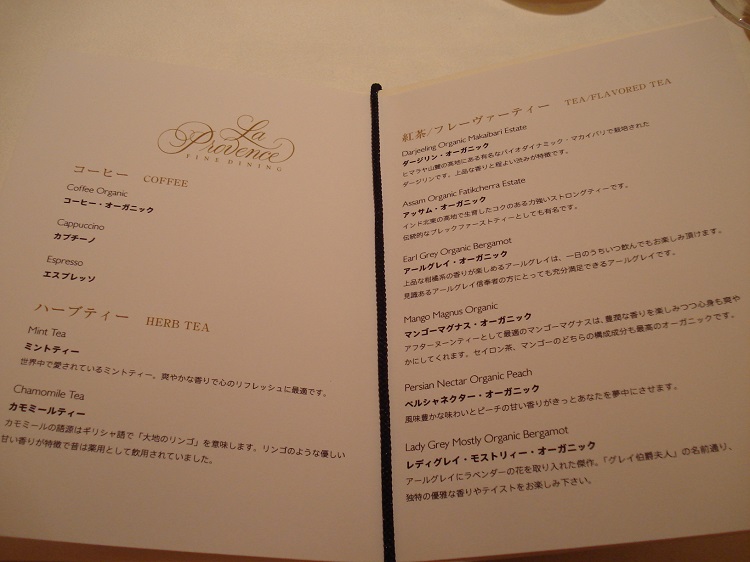 La
Provence
FINE DINING
コーヒー COFFEE
Coffee Organic
コーヒー・オーガニック
Cappuccino
カプチーノ
Espresso
エスプレッソ
ハーブティー HERB TEA
Mint Tea
ミントティー
世界中で愛されているミントティー。爽やかな香りで心のリフレッシュに最適です。
Chamomile Tea
カモミールティー
カモミールの語源はギリシャ語で「大地のリンゴ」を意味します。リンゴのような優しい
甘い香りが特徴で昔は薬用として飲用されていました。
紅茶/フレーヴァーティー TEA/FLAVORED TEA
Darjeeling Organic Makaibari Estate
ダージリン・オーガニック
ヒマラヤ山麓の高地にある有名なバイオダイナミック・マカイバリで栽培された
ダージリンです。上品な香りと程よい渋みが特徴です。
Assam Organic Fatikcherra Estate
アッサム・オーガニック
インド北東の高地で生育したコクのある力強いストロングティーです。
伝統的なブレックファーストティーとしても有名です。
Earl Grey Organic Bergamot
アールグレイ・オーガニック
上品な柑橘系の香りが楽しめるアールグレイは、一日のうちいつ飲んでもお楽しみ頂けます。
見識あるアールグレイ信奉者の方にとっても充分満足できるアールグレイです。
Mango Magnus Organic
マンゴーマグナス・オーガニック
アフターヌーンティーとして最適のマンゴーマグナスは、豊潤な香りを楽しみつつ心身も爽や
かにしてくれます。セイロン茶、マンゴーのどちらの構成成分も最高のオーガニックです。
Persian Nectar Organic Peach
ペルシャネクター・オーガニック
風味豊かな味わいとピーチの甘い香りがきっとあなたを夢中にさせます。
Lady Grey Mostly Organic Bergamot
レディグレイ・モストリィー・オーガニック
アールグレイにラベンダーの花を取り入れた傑作。「グレイ伯爵夫人」の名前通り、
独特の優雅な香りやテイストをお楽しみ下さい。